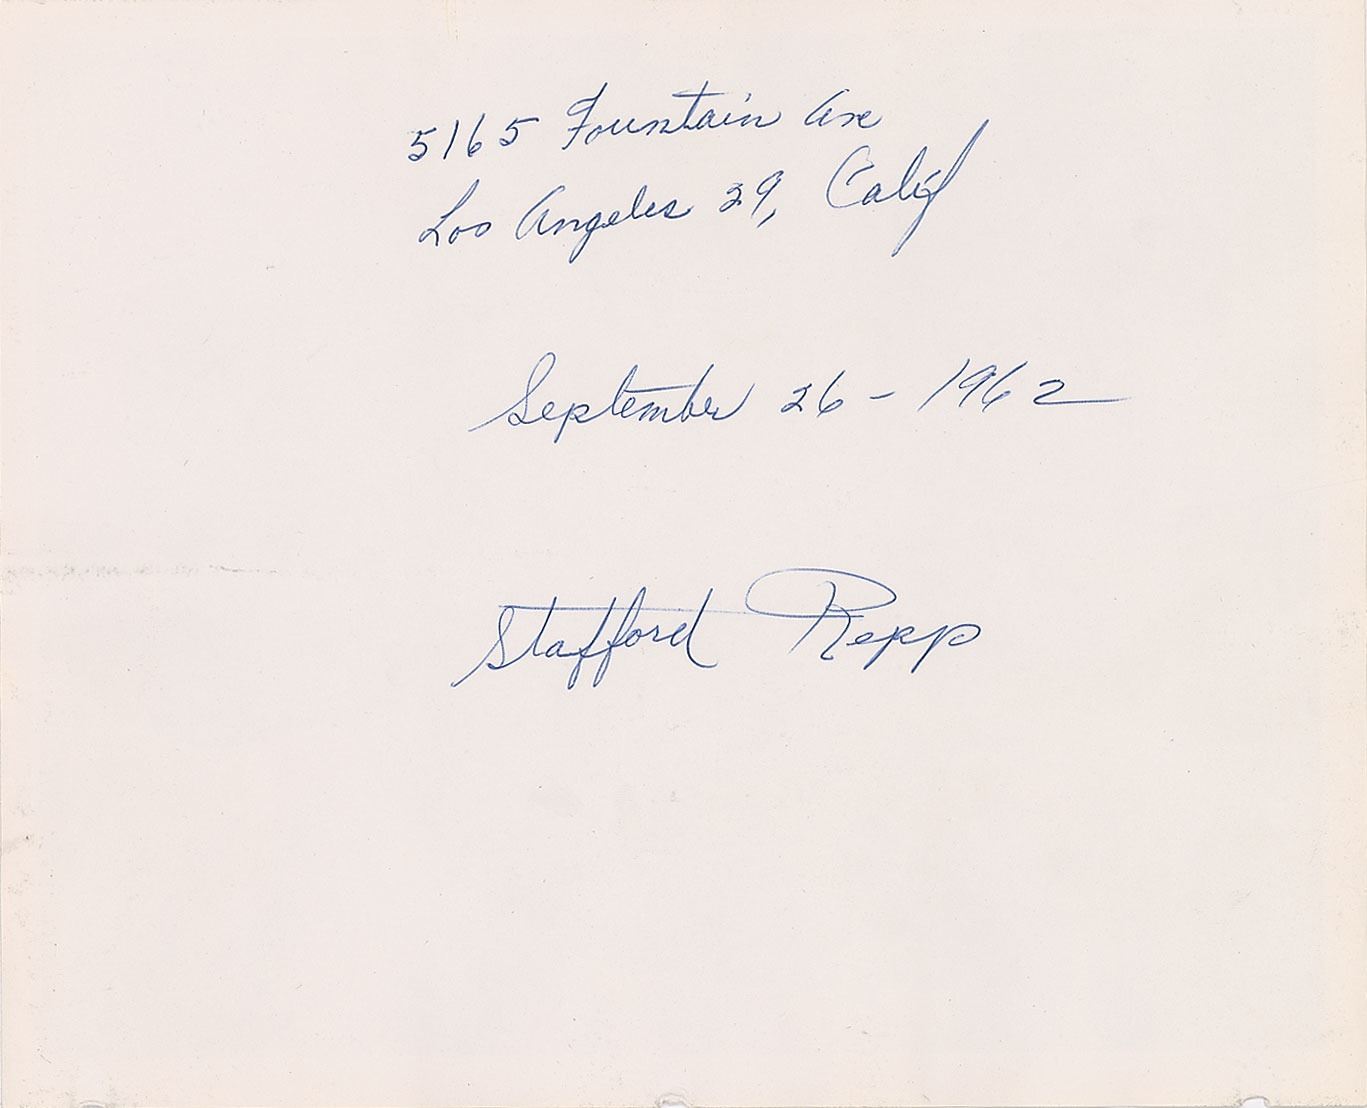 5165 Fountain Ave
Los Angeles 29, Calif
September 26 - 1962
Stafford Repp